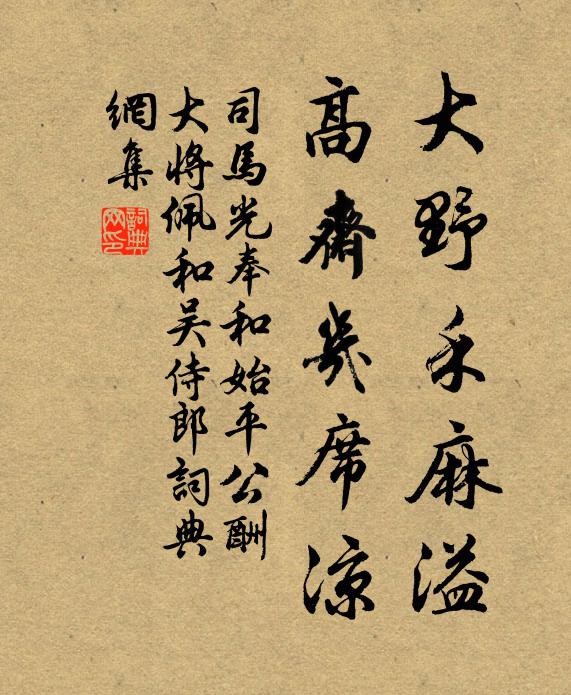 大野禾麻溢
高齋几席涼
司馬光奉和始平公酬
大將佩和吴侍郎詞典
網集
詞典
网印